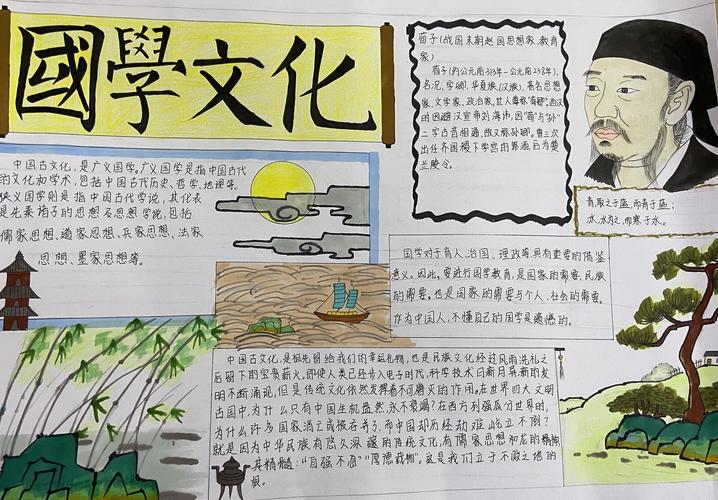 國學文化
荀子(战国末期赵国思想家、教育
家)
荀子(约公元前313年-公元前238年),
名况,字卿,华夏族(汉族),著名思想
家、文学家、政治家,世人尊称“荀卿”。西汉
时因避汉宣帝刘询讳,因“荀”与“孙”
二字古音相通,故又称孙卿。曾三次
出任齐国稷下学宫的祭酒,后为楚
兰陵令。
青,取之于蓝,而青于蓝;
冰,水为之,而寒于水。
中国古文化,是广义国学。广义国学是指中国古代
的文化和学术,包括中国古代历史、哲学、地理等。
狭义国学则是指中国古代学说,其代表
是先秦诸子的思想及思想学说,包括
儒家思想、道家思想、兵家思想、法家
思想、墨家思想等。
国学对于育人、治国、理政等,具有重要的借鉴
意义。因此,要进行国学教育,是国家的需要、民族
的需要,也是国家的需要与个人、社会的需要。
作为中国人,不懂自己的国学是遗憾的。
中国古文化,是祖先留给我们的幸运礼物,也是民族文化经过风雨洗礼之
后留下的宝贵薪火。即使人类已经步入电子时代,科学技术日新月异新的发
明不断涌现,但是传统文化依然发挥着不可磨灭的作用。在世界四大文明
古国中,为什么只有中国生机盎然,永不衰竭?在西方列强瓜分世界时,
为什么许多国家消亡或被吞并了,而中国却历经劫难屹立不倒?
就是因为中华民族有悠久深邃的传统文化,有儒家思想和龙的精神
其精髓:“自强不息”“厚德载物”。这是我们立于不败之地的
根。